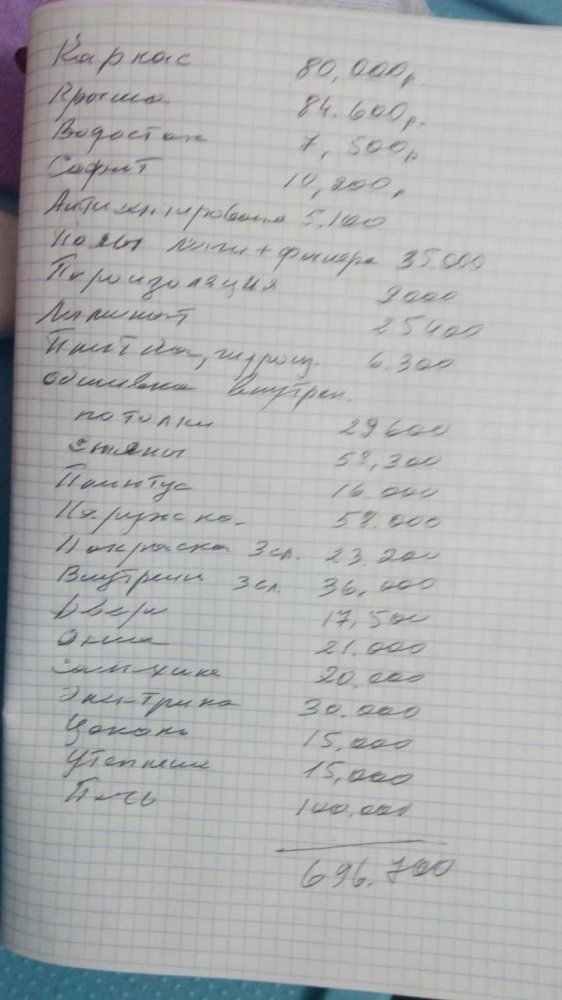 Каркас 80,000р.
Крыша 84.600р.
Водосток 7,500р
Софит 10,200р
Антисептирование 5,100
Полы лаги+фанера 35.000
Пароизоляция 9000
Ламинат 25400
6.300
обшивка внутрен.
потолки 29600
стены 58,300
Плинтус 16.000
Наружная 58.000
Покраска 3сл. 23.200
Внутрени 3 сл. 36,000
Двери 17,500
Окна 21.000
Сантехника 20.000
Электрика 30.000
Цоколь 15,000
Утепление 15,000
Печь 100.000
696.700